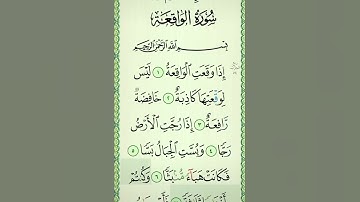 سُورَةُ الْوَاقِعَةِ
بِسْمِ اللَّهِ الرَّحْمَٰنِ الرَّحِيمِ
إِذَا وَقَعَتِ الْوَاقِعَةُ ١ لَيْسَ
لِوَقْعَتِهَا كَاذِبَةٌ ٢ خَافِضَةٌ
رَّافِعَةٌ ٣ إِذَا رُجَّتِ الْأَرْضُ
رَجًّا ٤ وَبُسَّتِ الْجِبَالُ بَسًّا ٥
فَكَانَتْ هَبَاءً مُّنْبَثًّا ٦ وَكُنتُمْ